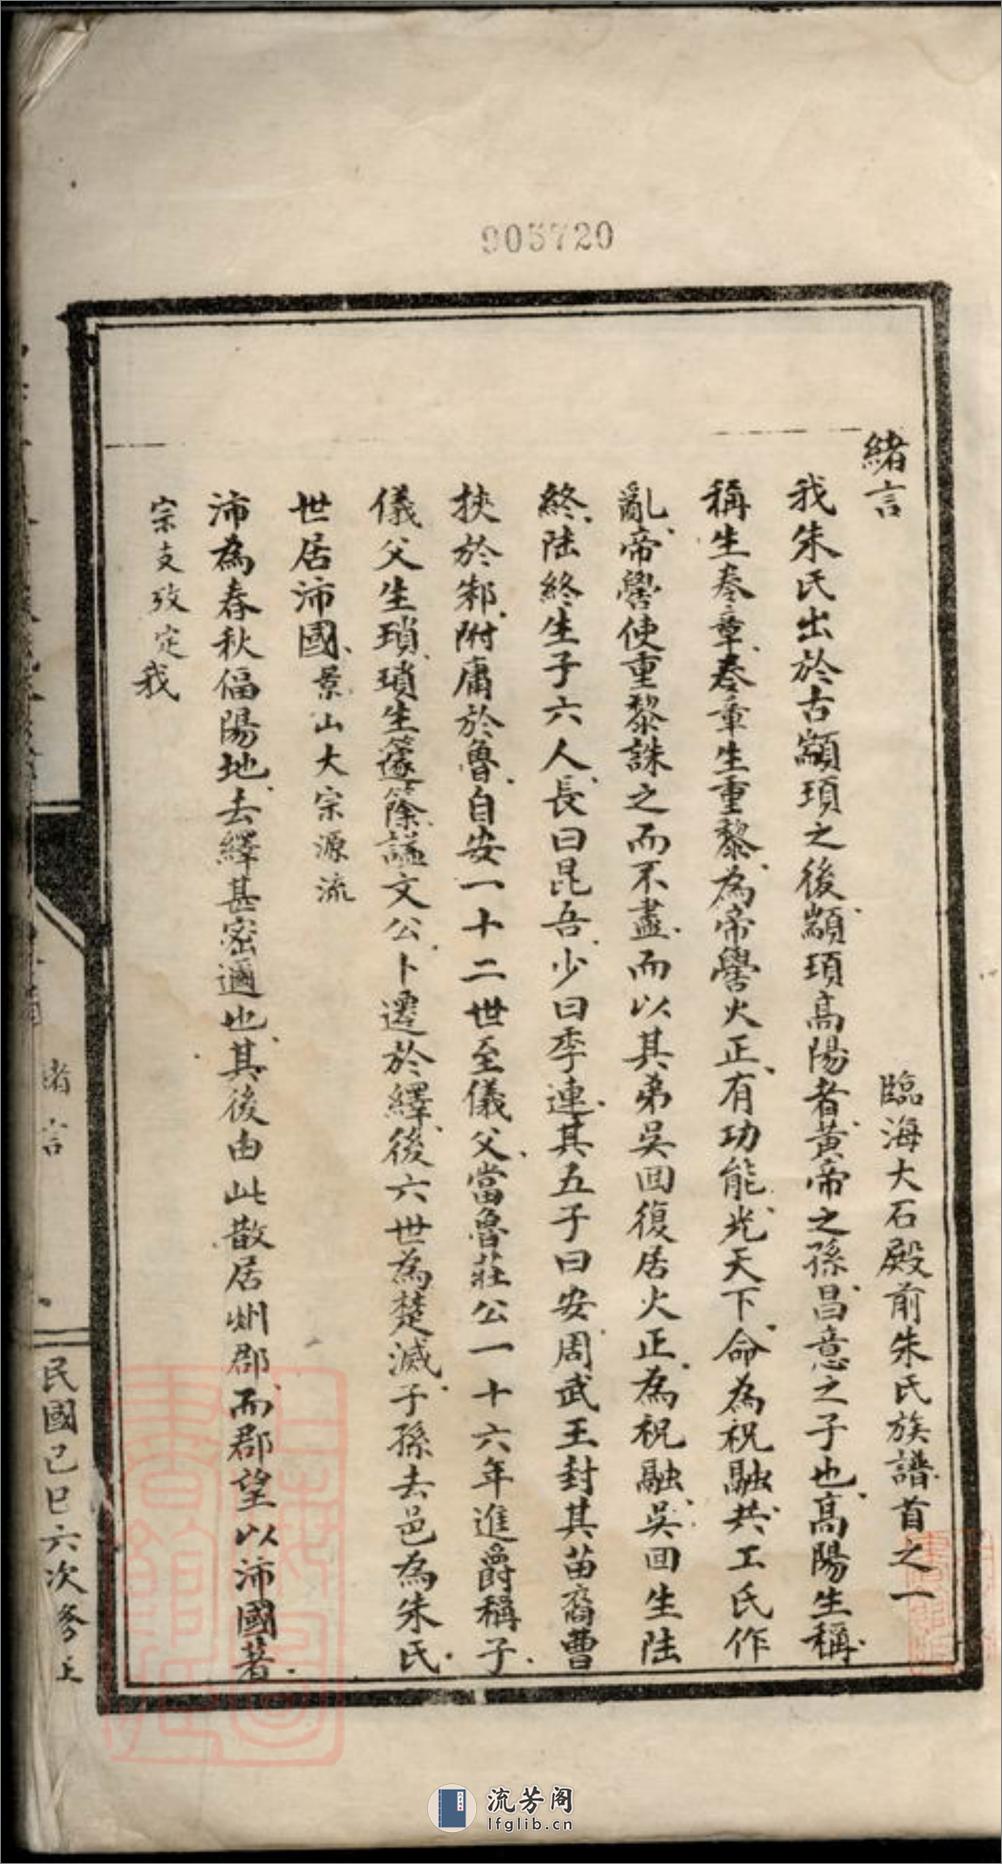 905720
緒言
臨海大石殿前朱氏族譜首之一
我朱氏出於古顓頊之後顓頊高陽者黃帝之孫昌意之子也高陽生稱
稱生卷章卷章生重黎為帝嚳火正有功能光天下命為祝融共工氏作
亂帝嚳使重黎誅之而不盡而以其弟吳回復居火正為祝融吳回生陸
終陸終生子六人長曰昆吾少曰季連其五子曰安周武王封其苗裔曹
挾於邾附庸於魯自安一十二世至儀父當魯莊公一十六年進爵稱子
儀父生瑣瑣生蘧篨謚文公卜遷於繹後六世為楚滅子孫去邑為朱氏
世居沛國景山大宗源流
沛為春秋偪陽地去繹甚密邇也其後由此散居州郡而郡望以沛國著
宗支攷定我
緒言
民國己巳六次修上
流芳阁
lfglib.cn